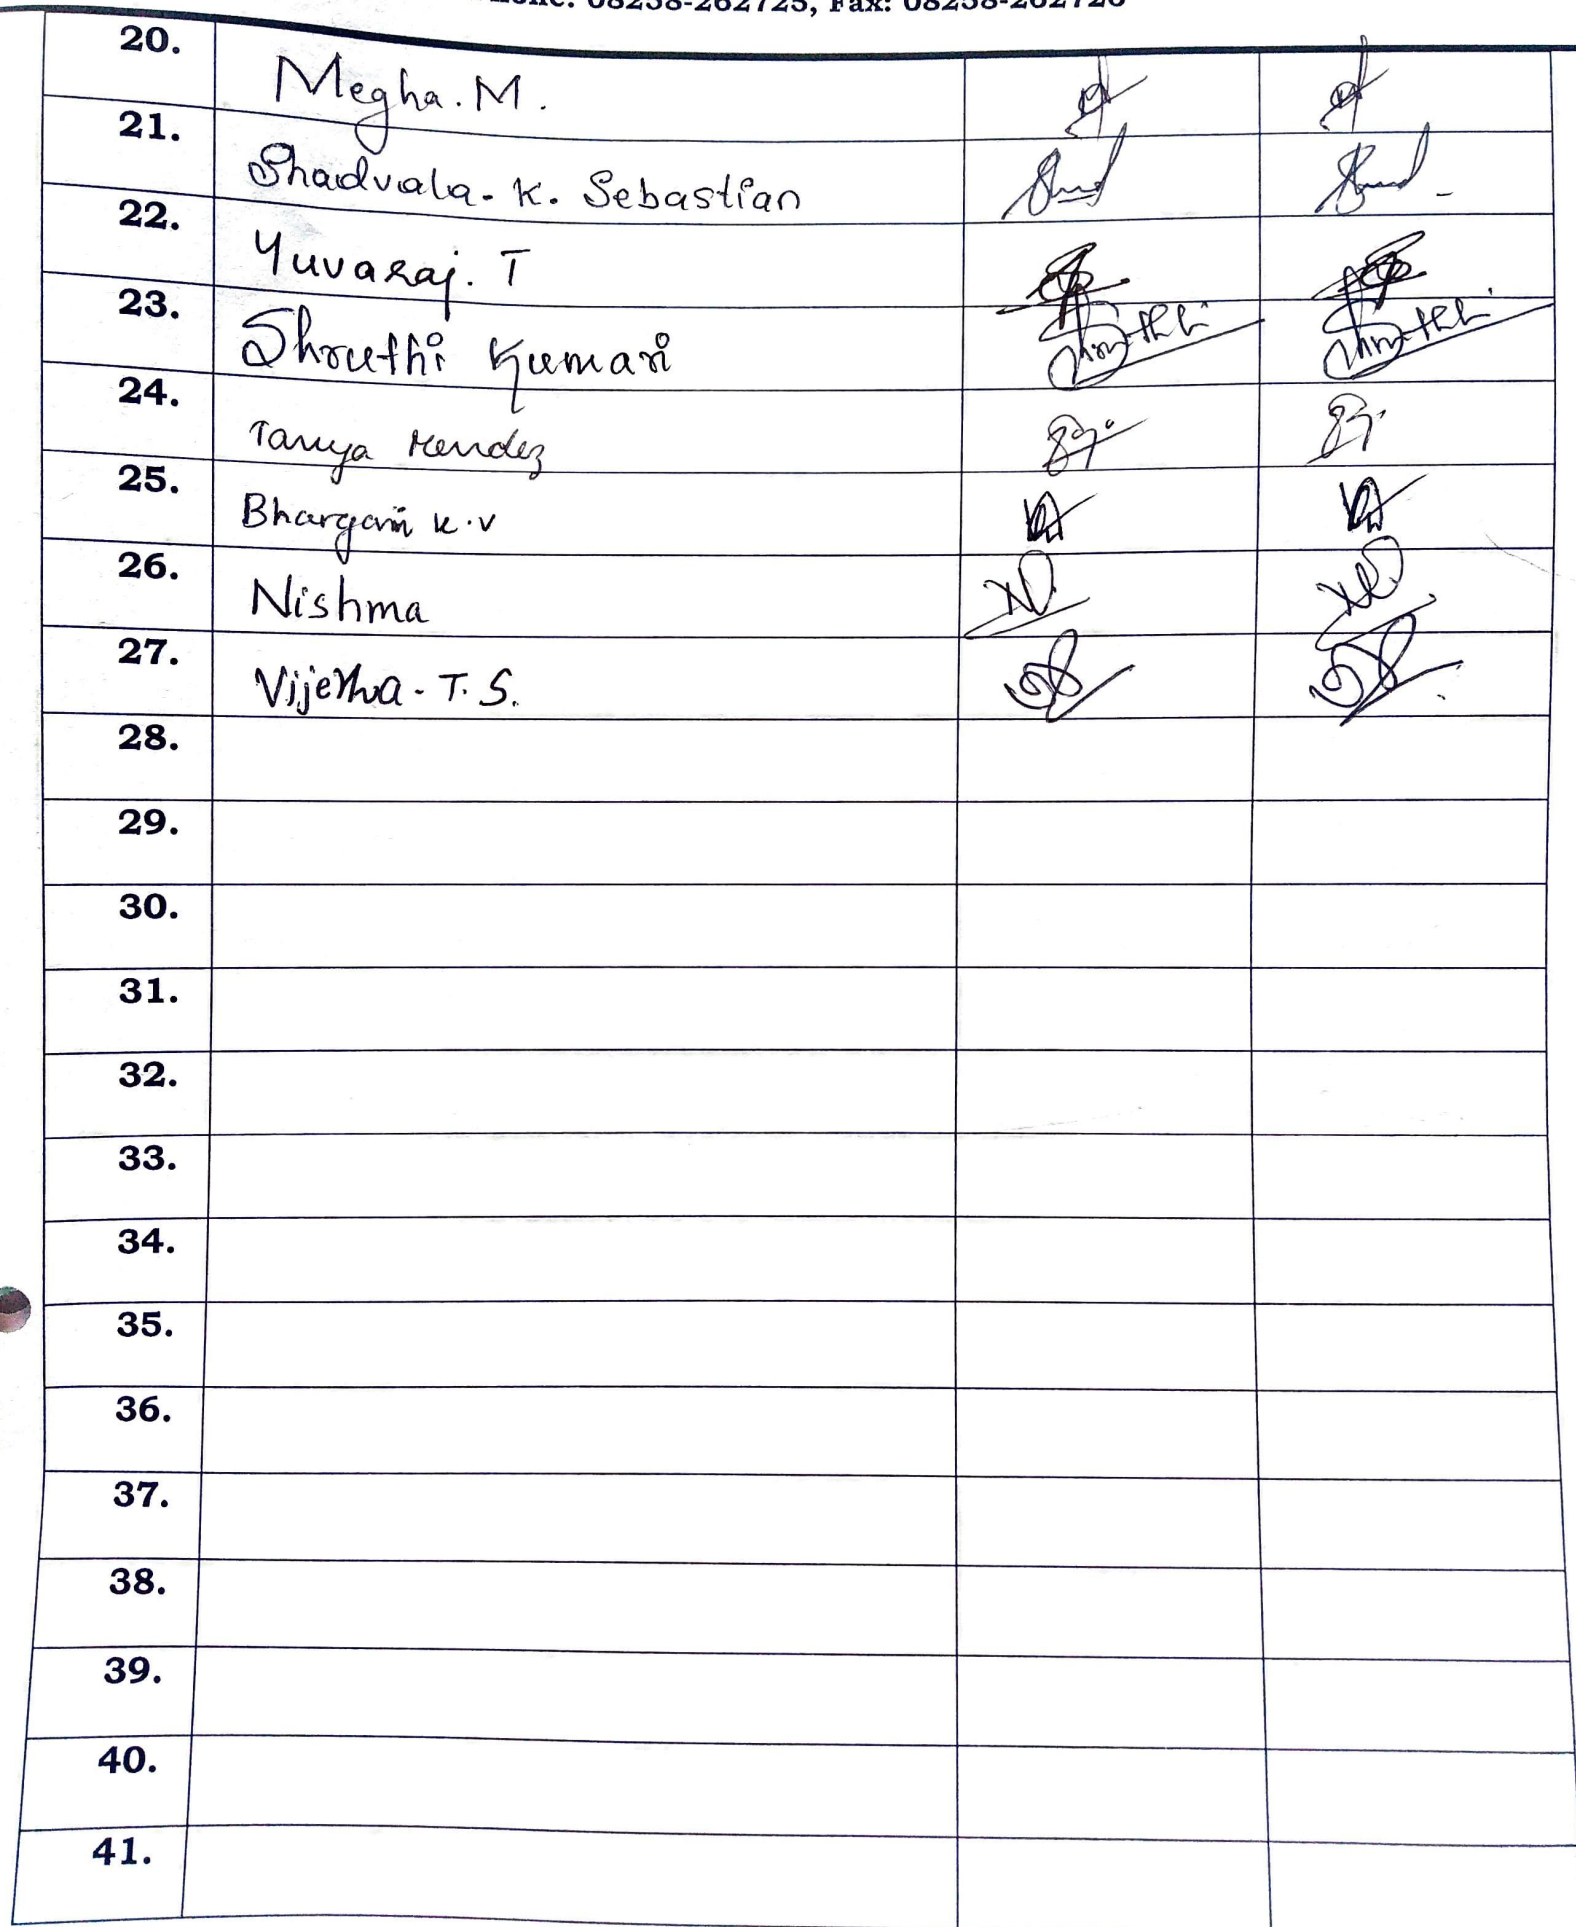 Phone: 08258-262725, Fax: 08258-262726
20. Megha. M.
21. Shadvala. K. Sebastian
22. Yuvaraj. T
23. Shruthi Kumari
24. Tanya Mendez
25. Bhargavi K.V
26. Nishma
27. Vijetha - T. S.
28.
29.
30.
31.
32.
33.
34.
35.
36.
37.
38.
39.
40.
41.